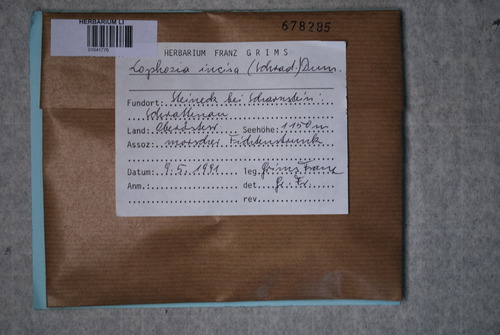 HERBARIUM LI
678285
HERBARIUM FRANZ GRIMS
Lophozia incisa (Schrad.) Dum.
Fundort: Steineck bei Scharnstein:
Schrattenau
Land: Oberösterr. Seehöhe: 1150 m
Assoz: morscher Fichtenstrunk
Datum: 9.5.1991 leg. Grims Franz
Anm.: det. Gr. Fr.
rev.